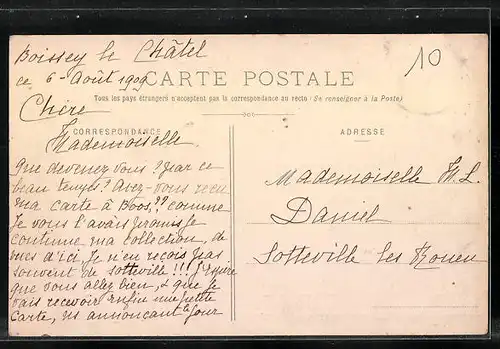 Boissey le Châtel
10
ce 6 - Août 1909
CARTE POSTALE
Tous les pays étrangers n'acceptent pas la correspondance au recto (Se renseigner à la Poste)
Chère
CORRESPONDANCE
ADRESSE
Mademoiselle.
Que devenez vous? par ce
beau temps? Avez-vous reçu
ma carte à Boos,?? comme
Je vous l'avais promis je
continue ma collection, de
vues d'ici, Je n'en reçois pas
souvent de Sotteville!!! J'espère
que vous allez bien, & que je
vais recevoir enfin une petite
Carte, m'annonçant le Jour
Mademoiselle M. L.
Daniel
Sotteville les Rouen